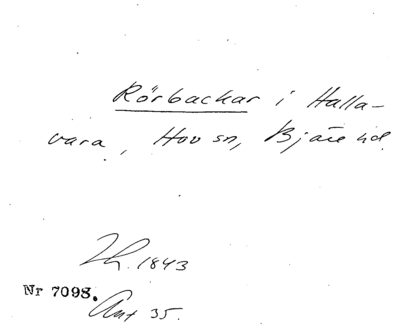 Rörbackar i Halla-
vara, Hov sn, Bjäre hd.
Th. 1843
Nr 7098.
Ant 35.